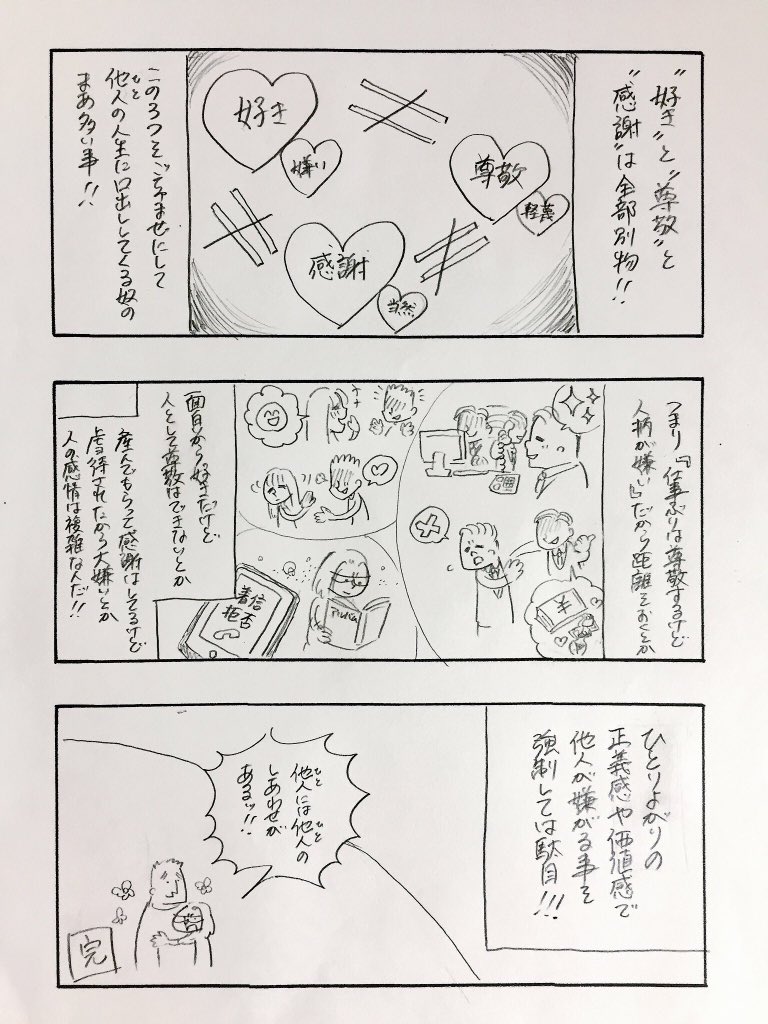 "好き"と"尊敬"と
"感謝"は全部別物!!
好き
嫌い
尊敬
軽蔑
感謝
当然
この3つをごちゃまぜにして
他人の人生に口出ししてくる奴の
ひと
まあ多い事!!
つまり『仕事ぶりは尊敬するけど
人柄が嫌い』だから距離をおくとか
面白から好きだけど
人として尊敬はできないとか
着信
拒否
産んでもらって感謝はしてるけど
虐待されたから大嫌いとか
人の感情は複雑なんだ!!
ひとりよがりの
正義感や価値感で
他人が嫌がる事を
強制しては駄目!!!
他人には他人の
ひと
ひと
しあわせが
あるッ!!
完